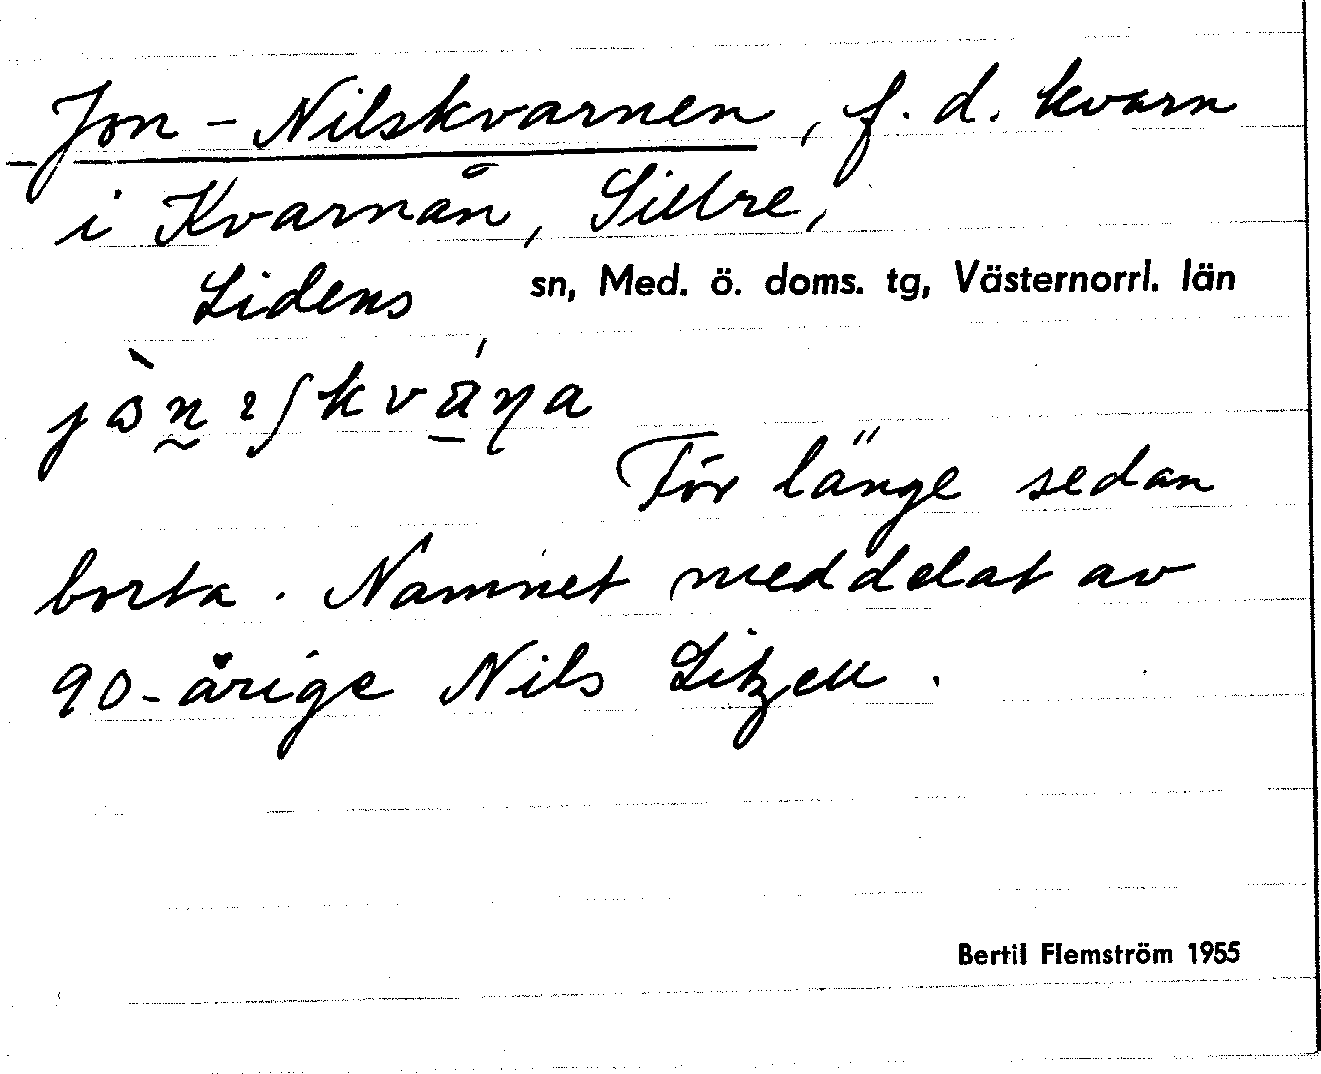 Jon-Nilskvarnen, f. d. kvarn
i Kvarnån, Sillre,
Lidens sn, Med. ö. doms. tg, Västernorrl. län
För länge sedan
borta. Namnet meddelat av
90-årige Nils Litzell.
Bertil Flemström 1955